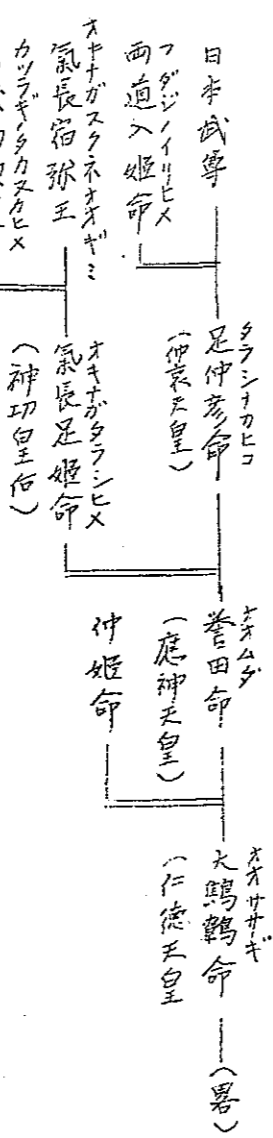 日本武尊
フダジノイリヒメ
両道入姫命
オキナガスクネオオギミ
氣長宿弥王
カツラギノタカヌカヒメ
タラシナカヒコ
足仲彦命
（仲哀天皇）
オキナガタラシヒメ
氣長足姫命
（神功皇后）
オオムダ
誉田命
（應神天皇）
仲姫命
オオササギ
大鷦鷯命
（仁徳天皇
（畧）